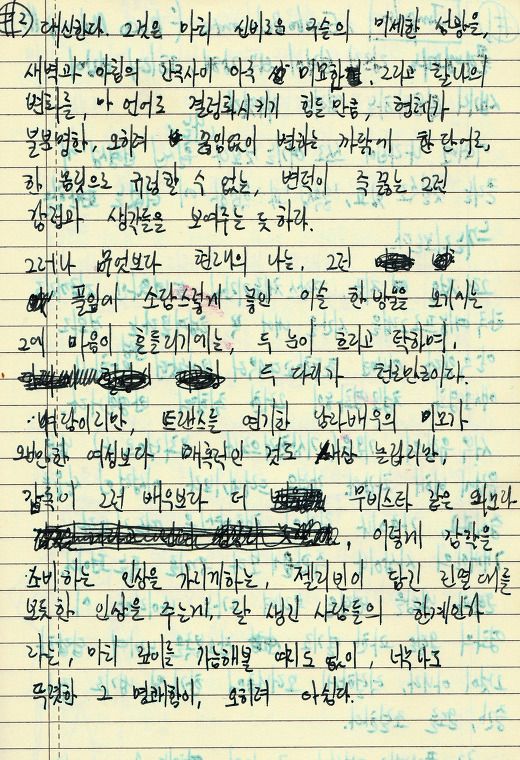 #2
대신한다. 그것은 마치 신비로운 구슬의 미세한 성황을,
새벽과 아침의 간극사이 아주 미묘한. 그리고 찰나의
변화를, 마 언어로 결정화시키기 힘들 만큼, 형체가
불분명한, 오히려 끊임없이 변하는 까닭에 한 단어로,
한 몸짓으로 규정할 수 없는, 변덕이 죽끓는 그런
감정과 생각들을 보여주는 듯 하다.
그러나 무엇보다 현재의 나는, 그런
풀잎에 소담스럽게 놓인 이슬 한방울을 모키시는
그에 마음이 흔들리기에는, 두 눈이 흐리고 탁하며,
두 다리가 천로만근이다.
벼랑이리만, 트랜스를 연기한 남자배우의 미모가
왠만한 여성보다 매혹적인 것도 새삼 놀랍지만,
감독이 그런 배우보다 더 무비스타 같은 외모라
, 이렇게 감학을
소비하는 인상을 가리게하는, 젤리빈이 담긴 진열대를
보듯한 인상을 주는게, 잘 생긴 사람들의 한계인가
라는, 마치 깊이를 가늠해볼 여지도 없이, 너무나도
뚜렷한 그 명쾌함이, 오히려 아쉽다.